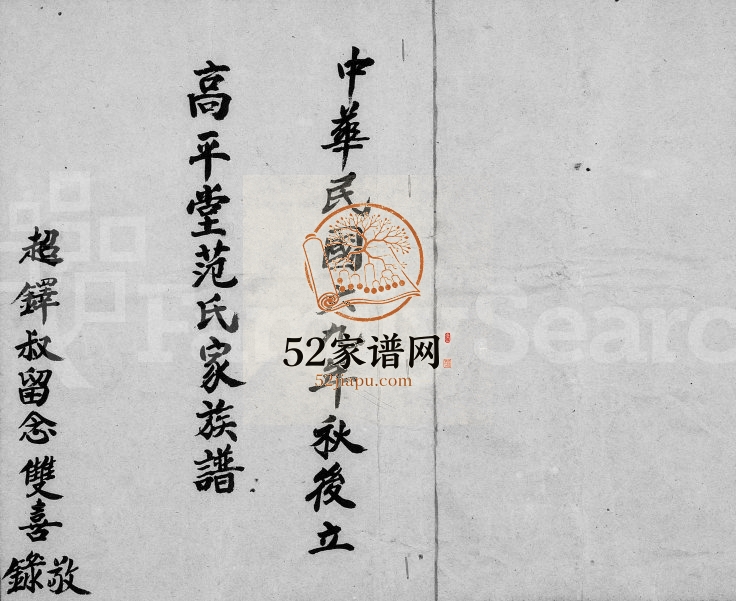 中華民國六九年秋後立
高平堂范氏家族譜
超鐸叔留念雙喜敬錄
52家谱网
52jiapu.com